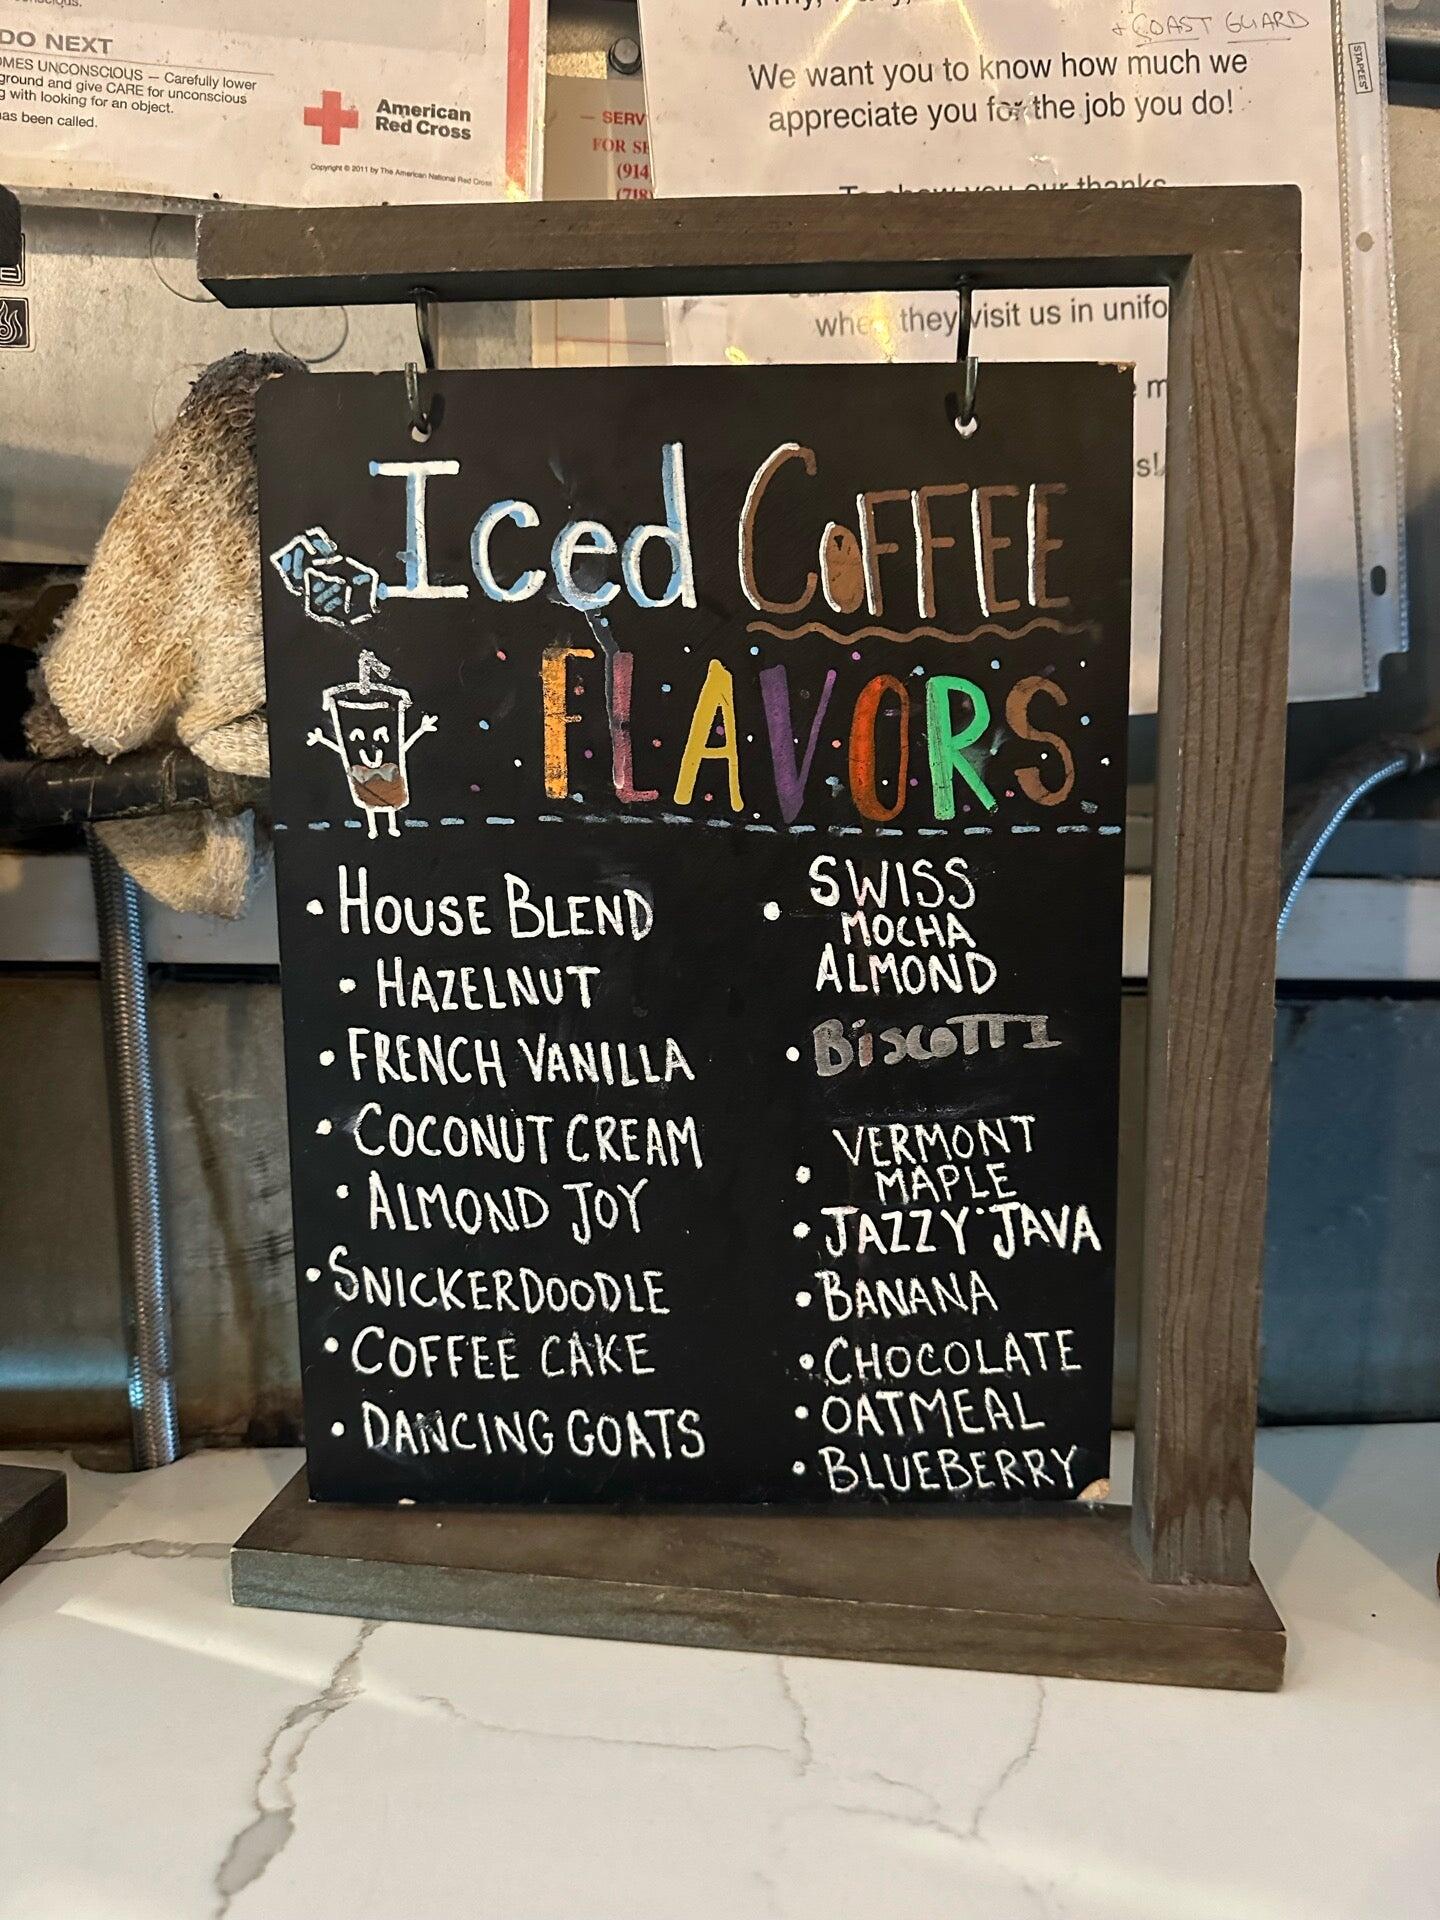 DO NEXT
OMES UNCONSCIOUS — Carefully lower
ground and give CARE for unconscious
g with looking for an object.
as been called.
American
Red Cross
Copyright © 2011 by The American National Red Cross
— SERV
FOR SE
(914
(718)
+ COAST GUARD
We want you to know how much we
appreciate you for the job you do!
To show you our thanks
when they visit us in unifo
m
s!
STAPLES
Iced COFFEE
FLAVORS
• HOUSE BLEND
• HAZELNUT
• FRENCH VANILLA
• COCONUT CREAM
• ALMOND JOY
• SNICKERDOODLE
• COFFEE CAKE
• DANCING GOATS
• SWISS
MOCHA
ALMOND
• BiscoTTI
• VERMONT
MAPLE
• JAZZY JAVA
• BANANA
• CHOCOLATE
• OATMEAL
• BLUEBERRY